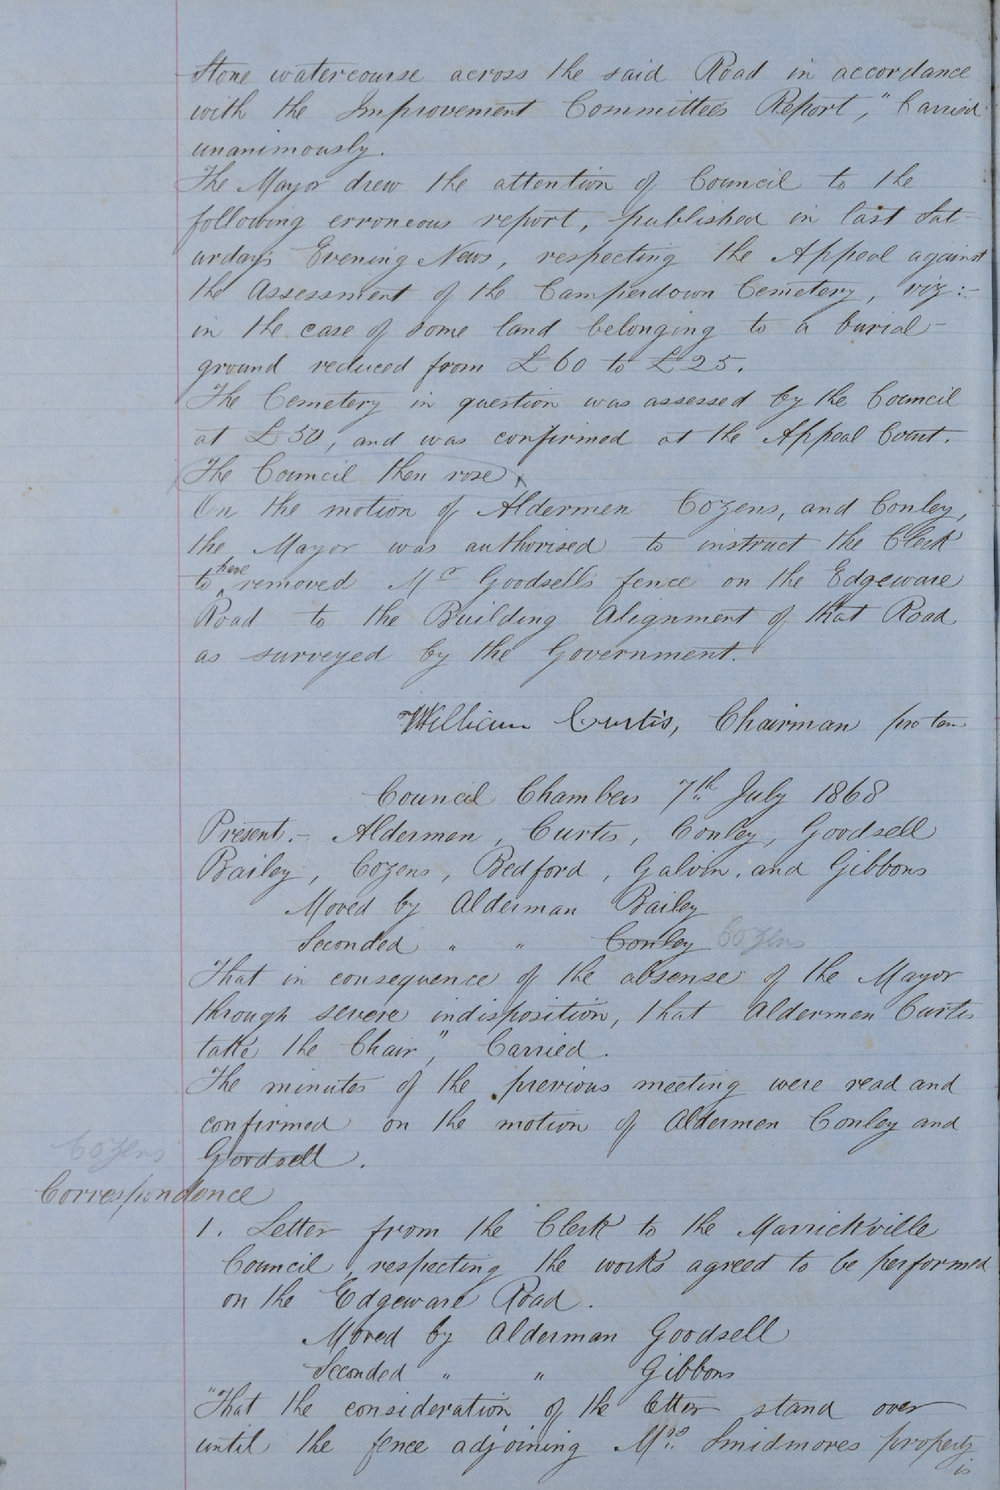 Stone watercourse across the said Road in accordance
with the Improvement Committee's Report," Carried
unanimously.
The Mayor drew the attention of Council to the
following erroneous report, published in last Sat-
urdays Evening News, respecting the Appeal against
the Assessment of the Camperdown Cemetery, viz:-
in the case of some land belonging to a burial-
ground reduced from £60 to £25.
The Cemetery in question was assessed by the Council
at £50, and was confirmed at the Appeal Court.
The Council then rose
On the motion of Aldermen Cozens, and Conley,
the Mayor was authorised to instruct the Clerk
to have removed Mr Goodsells fence on the Edgeware
Road to the Building Alignment of that Road
as surveyed by the Government.
William Curtis, Chairman pro tem
Council Chambers 7th July 1868
Present.- Aldermen, Curtis, Conley, Goodsell
Bailey, Cozens, Bedford, Galvin, and Gibbons
Moved by Alderman Bailey
Seconded " " Conley Cozens
That in consequence of the absense of the Mayor
through severe indisposition, that Aldermen Curtis
take the Chair," Carried.
The minutes of the previous meeting were read and
confirmed on the motion of Aldermen Conley and
Cozens Goodsell.
Correspondence
1. Letter from the Clerk to the Marrickville
Council, respecting the works agreed to be performed
on the Edgeware Road.
Moved by Alderman Goodsell
Seconded " " Gibbons
"That the consideration of the letter stand over
until the fence adjoining Mrs Smidmores property
is